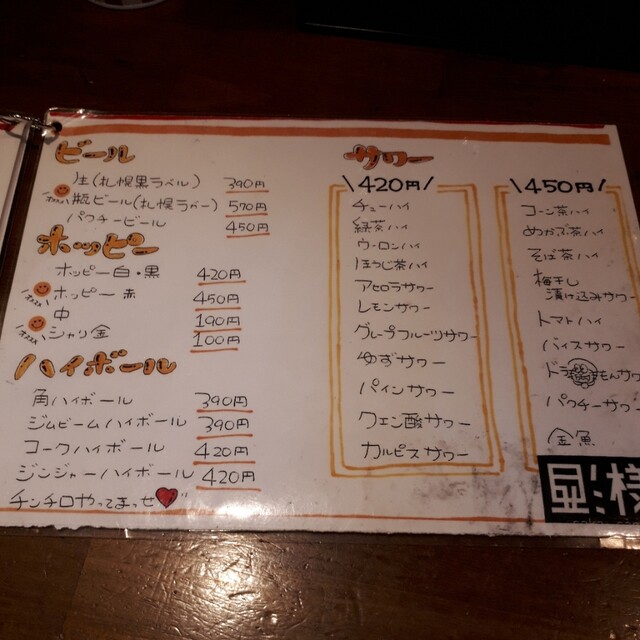 ビール
生(札幌黒ラベル) 390円
オススメ 瓶ビール(札幌ラベー) 570円
パクチービール 450円
ホッピー
ホッピー白・黒 420円
オススメ ホッピー赤 450円
中 190円
オススメ シャリ金 100円
ハイボール
角ハイボール 390円
ジムビームハイボール 390円
コークハイボール 420円
ジンジャーハイボール 420円
チンチロやってまっせ
サワー
\420円/
チューハイ
緑茶ハイ
ウーロンハイ
ほうじ茶ハイ
アセロラサワー
レモンサワー
グレープフルーツサワー
ゆずサワー
パインサワー
クエン酸サワー
カルピスサワー
\450円/
コーン茶ハイ
めかぶ茶ハイ
そば茶ハイ
梅干し
漬け込みサワー
トマトハイ
バイスサワー
ドラ もんサワ
パクチーサワー
金魚